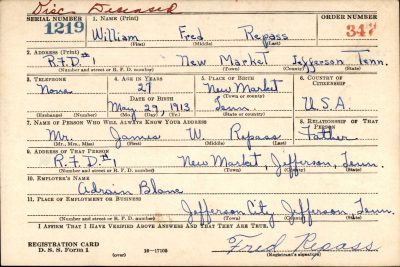 Disc Deceased
SERIAL NUMBER 1. NAME (Print) ORDER NUMBER
1219 William Fred Repass 347
(First) (Middle) (Last)
2. ADDRESS (Print)
R.F.D.#1 New Market Jefferson Tenn.
(Number and street or R. F. D. number) (Town) (County) (State)
3. TELEPHONE 4. AGE IN YEARS 5. PLACE OF BIRTH 6. COUNTRY OF CITIZENSHIP
None 27 New Market
DATE OF BIRTH (Town or county)
May 29, 1913 Tenn. U.S.A.
(Exchange) (Number) (Mo.) (Day) (Yr.) (State or country)
7. NAME OF PERSON WHO WILL ALWAYS KNOW YOUR ADDRESS 8. RELATIONSHIP OF THAT PERSON
Mr. James W. Repass Father
(Mr., Mrs., Miss) (First) (Middle) (Last)
9. ADDRESS OF THAT PERSON
R.F.D.#1 New Market, Jefferson, Tenn.
(Number and street or R. F. D. number) (Town) (County) (State)
10. EMPLOYER'S NAME
Adrain Blanc
11. PLACE OF EMPLOYMENT OR BUSINESS
Jefferson City Jefferson Tenn.
(Number and street or R. F. D. number) (Town) (County) (State)
I AFFIRM THAT I HAVE VERIFIED ABOVE ANSWERS AND THAT THEY ARE TRUE.
REGISTRATION CARD
D. S. S. Form 1 16—17105 Fred Repass
(Registrant's signature)